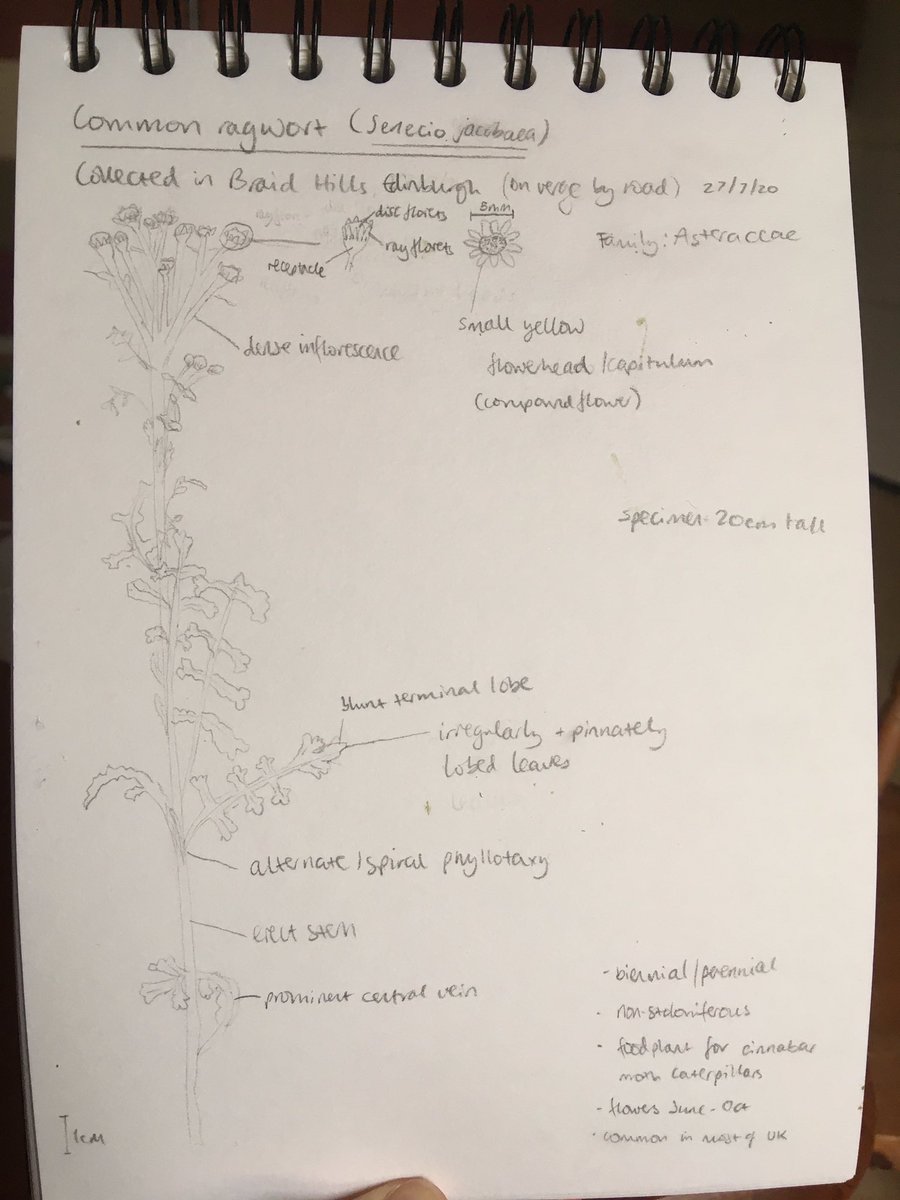 Common ragwort (Senecio jacobaea)
Collected in Braid Hills Edinburgh (on verge by road) 27/7/20
Family: Asteraceae
disc florets
ray florets
receptacle
8mm
small yellow
flowerhead / capitulum
(compound flower)
dense inflorescence
specimen - 20cm tall
blunt terminal lobe
irregularly + pinnately
lobed leaves
alternate / spiral phyllotaxy
erect stem
prominent central vein
- biennial / perennial
- non-stoloniferous
- foodplant for cinnabar
moth caterpillars
- flowers June - Oct
- common in most of UK
1cm